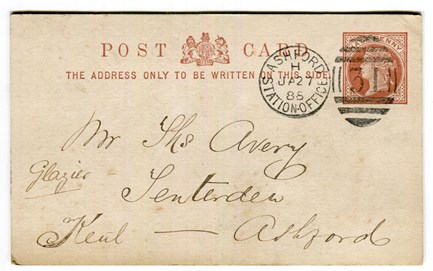 POST CARD
THE ADDRESS ONLY TO BE WRITTEN ON THIS SIDE.
ASHFORD
H
JA 27
86
STATION-OFFICE
PENNY
Mr Ths Avery
Glazier
Tenterden
Kent — Ashford